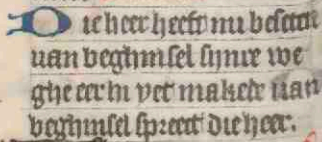 Die heer heeft mi beseten
uan beghinsel sijnre we
ghe eer hi yet makede uan
beghinsel spreect die heer.